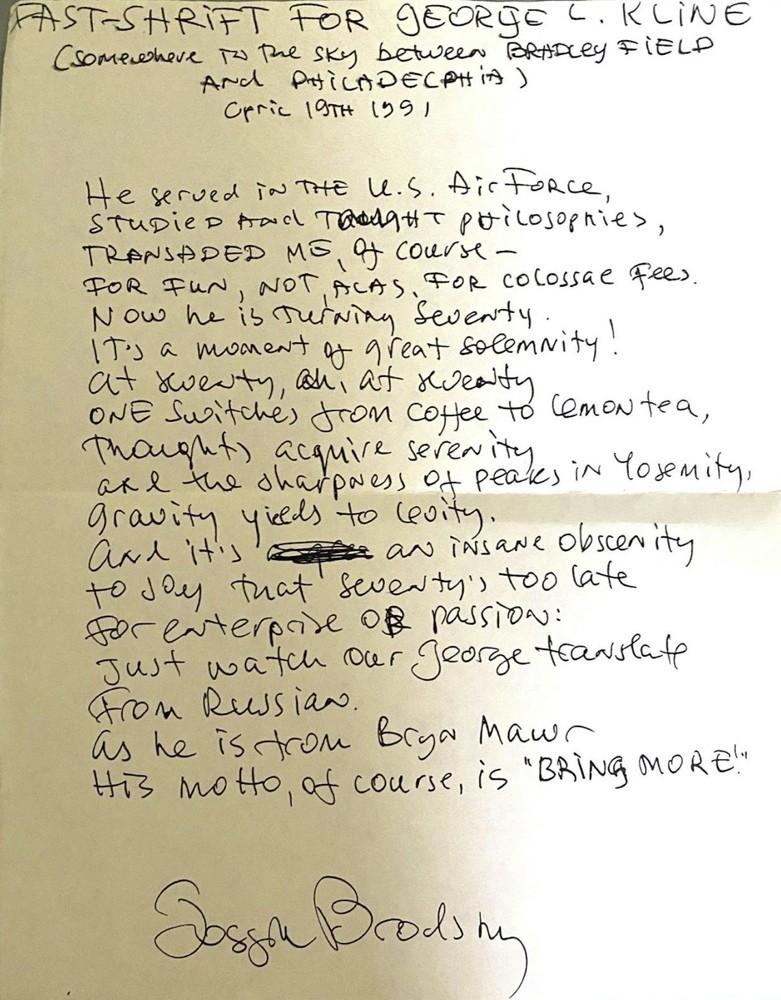 FAST-SHRIFT FOR GEORGE L. KLINE
(somewhere in the sky between BRADLEY FIELD
And PHILADELPHIA)
April 19TH 1991
He served in THE U.S. Air Force,
STUDIED And TAUGHT philosophies,
TRANSLATED ME, of course —
FOR FUN, NOT, ALAS, FOR colossal fees.
Now he is turning seventy.
IT's a moment of great solemnity!
At seventy, ah, at seventy
ONE switches from coffee to lemon tea,
thoughts acquire serenity
and the sharpness of peaks in Yosemity,
gravity yields to levity.
And it's an insane obscenity
to say that seventy's too late
for enterprise OR passion:
Just watch our George translate
from Russian.
As he is from Bryn Mawr
His motto, of course, is "BRING MORE!"
Joseph Brodsky